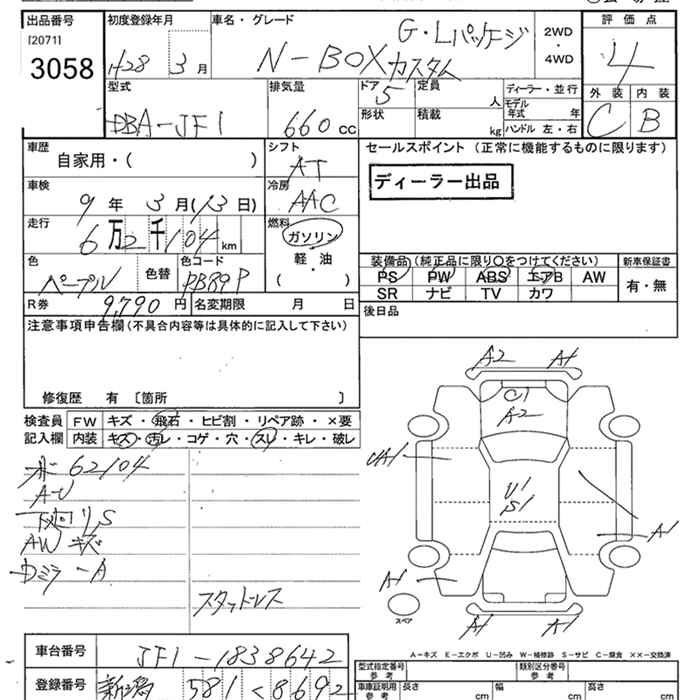 出品番号 初度登録年月 車名・グレード 評価点
[2071]
3058 H28 3月 N-BOXカスタム G・Lパッケージ 2WD・4WD 4
型式 排気量 ドア 定員 ディーラー・並行 外装 内装
DBA-JF1 660cc 5 人 モデル年式 年 C B
形状 積載 kg ハンドル 左・右
車歴 自家用・( ) シフト AT セールスポイント(正常に機能するものに限ります)
車検 9年 3月(13日) 冷房 AAC ディーラー出品
走行 6万2千104km 燃料 ガソリン
軽・油
( )
色 パープル 色替 色コード PB89P 装備品(純正品に限り○をつけてください) 新車保証書
PS PW ABS エアB AW 有・無
SR ナビ TV カワ
R券 9,790円 名変期限 月 日 後日品
注意事項申告欄(不具合内容等は具体的に記入して下さい)
修復歴 有 〔箇所 〕
検査員 FW キズ・飛石・ヒビ割・リペア跡・×要
記入欄 内装 キズ・汚レ・コゲ・穴・スレ・キレ・破レ
62104
A-U
下廻りS
AWキズ
Dミラ-A
スタッドレス
A2 A1
C1
A2
UA1
U1
S1
A1
A1
スペア
A1 A1
A-キズ E-エクボ U-凹み W-補修跡 S-サビ C-腐食 XX-交換済
車台番号 JF1-1838642
登録番号 新潟 581 く 8692
型式指定番号 参考 類別区分番号 参考
車庫証明用 参考 長さ cm 幅 cm 高さ cm